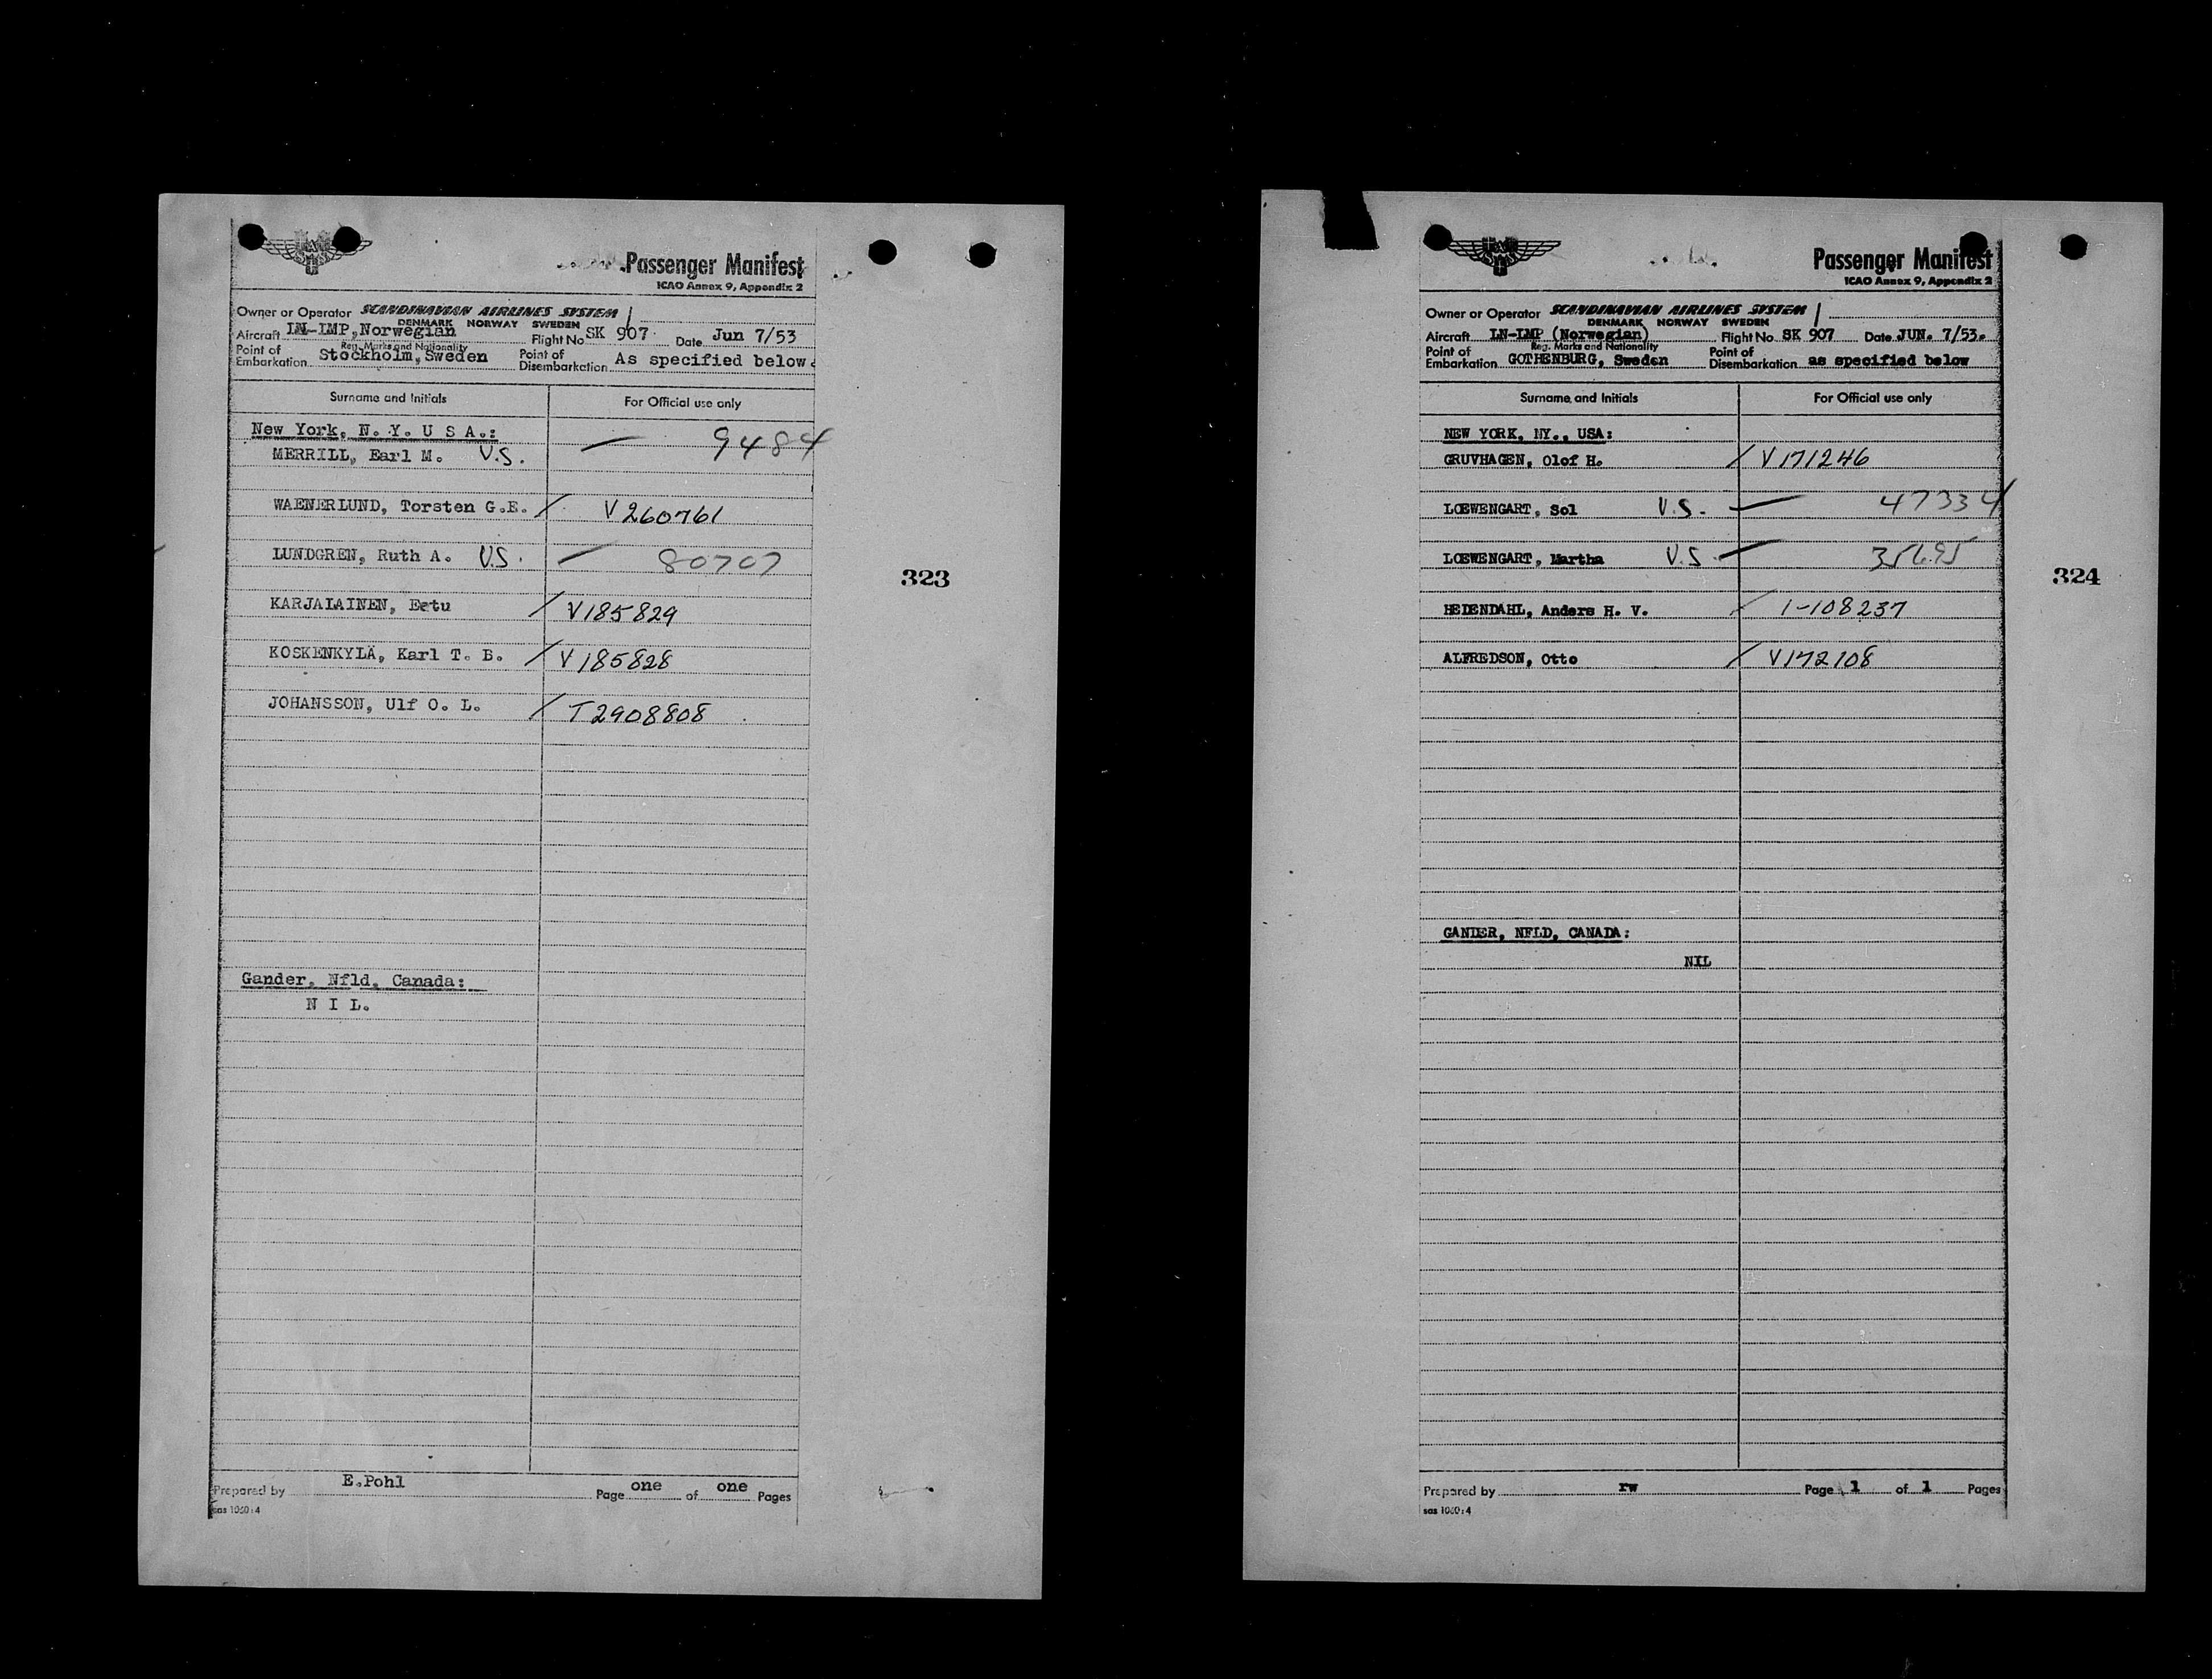 Passenger Manifest
ICAO Annex 9, Appendix 2
Owner or Operator SCANDINAVIAN AIRLINES SYSTEM
DENMARK NORWAY SWEDEN
Aircraft LN-LMP, Norwegian Flight No SK 907 Date Jun 7/53
Reg. Marks and Nationality
Point of Embarkation Stockholm, Sweden Point of Disembarkation As specified below.
Surname and Initials For Official use only
New York, N. Y. U S A.:
MERRILL, Earl M. U.S. — 9484
WAENERLUND, Torsten G.E. / V 260761
LUNDGREN, Ruth A. U.S. — 80707
KARJALAINEN, Eetu / V185829
KOSKENKYLÄ, Karl T. B. / V185828
JOHANSSON, Ulf O. L. / T2908808
Gander, Nfld, Canada:
N I L.
Prepared by E.Pohl Page one of one Pages
sas 1060:4
323
Passenger Manifest
ICAO Annex 9, Appendix 2
Owner or Operator SCANDINAVIAN AIRLINES SYSTEM
DENMARK NORWAY SWEDEN
Aircraft LN-LMP (Norwegian) Flight No SK 907 Date JUN. 7/53.
Reg. Marks and Nationality
Point of Embarkation GOTHENBURG, Sweden Point of Disembarkation as specified below
Surname and Initials For Official use only
NEW YORK, NY., USA:
GRUVHAGEN, Olof H. / V171246
LOEWENGART, Sol U.S. — 47334
LOEWENGART, Martha U.S. — 35695
HEDENDAHL, Anders H. V. / 1-108237
ALFREDSON, Otto / V172108
GANDER, NFLD, CANADA:
NIL
Prepared by rw Page 1 of 1 Pages
sas 1060:4
324